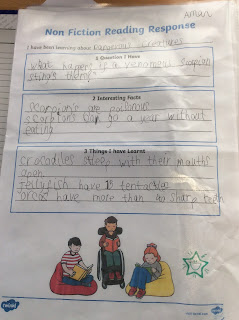 Aman
Non Fiction Reading Response
I have been learning about Dangerous creatures
1 Question I Have
what happens if a vichnoment scorpian
stings thereself
2 Interesting Facts
scorpion's are poisonous
scorpions can go a year without
eating
3 Things I have Learnt
crocodiles sleep with their mouths
open
Jellyfish have 15 tentacles
orcas have more than 40 sharp teeth
twinkl